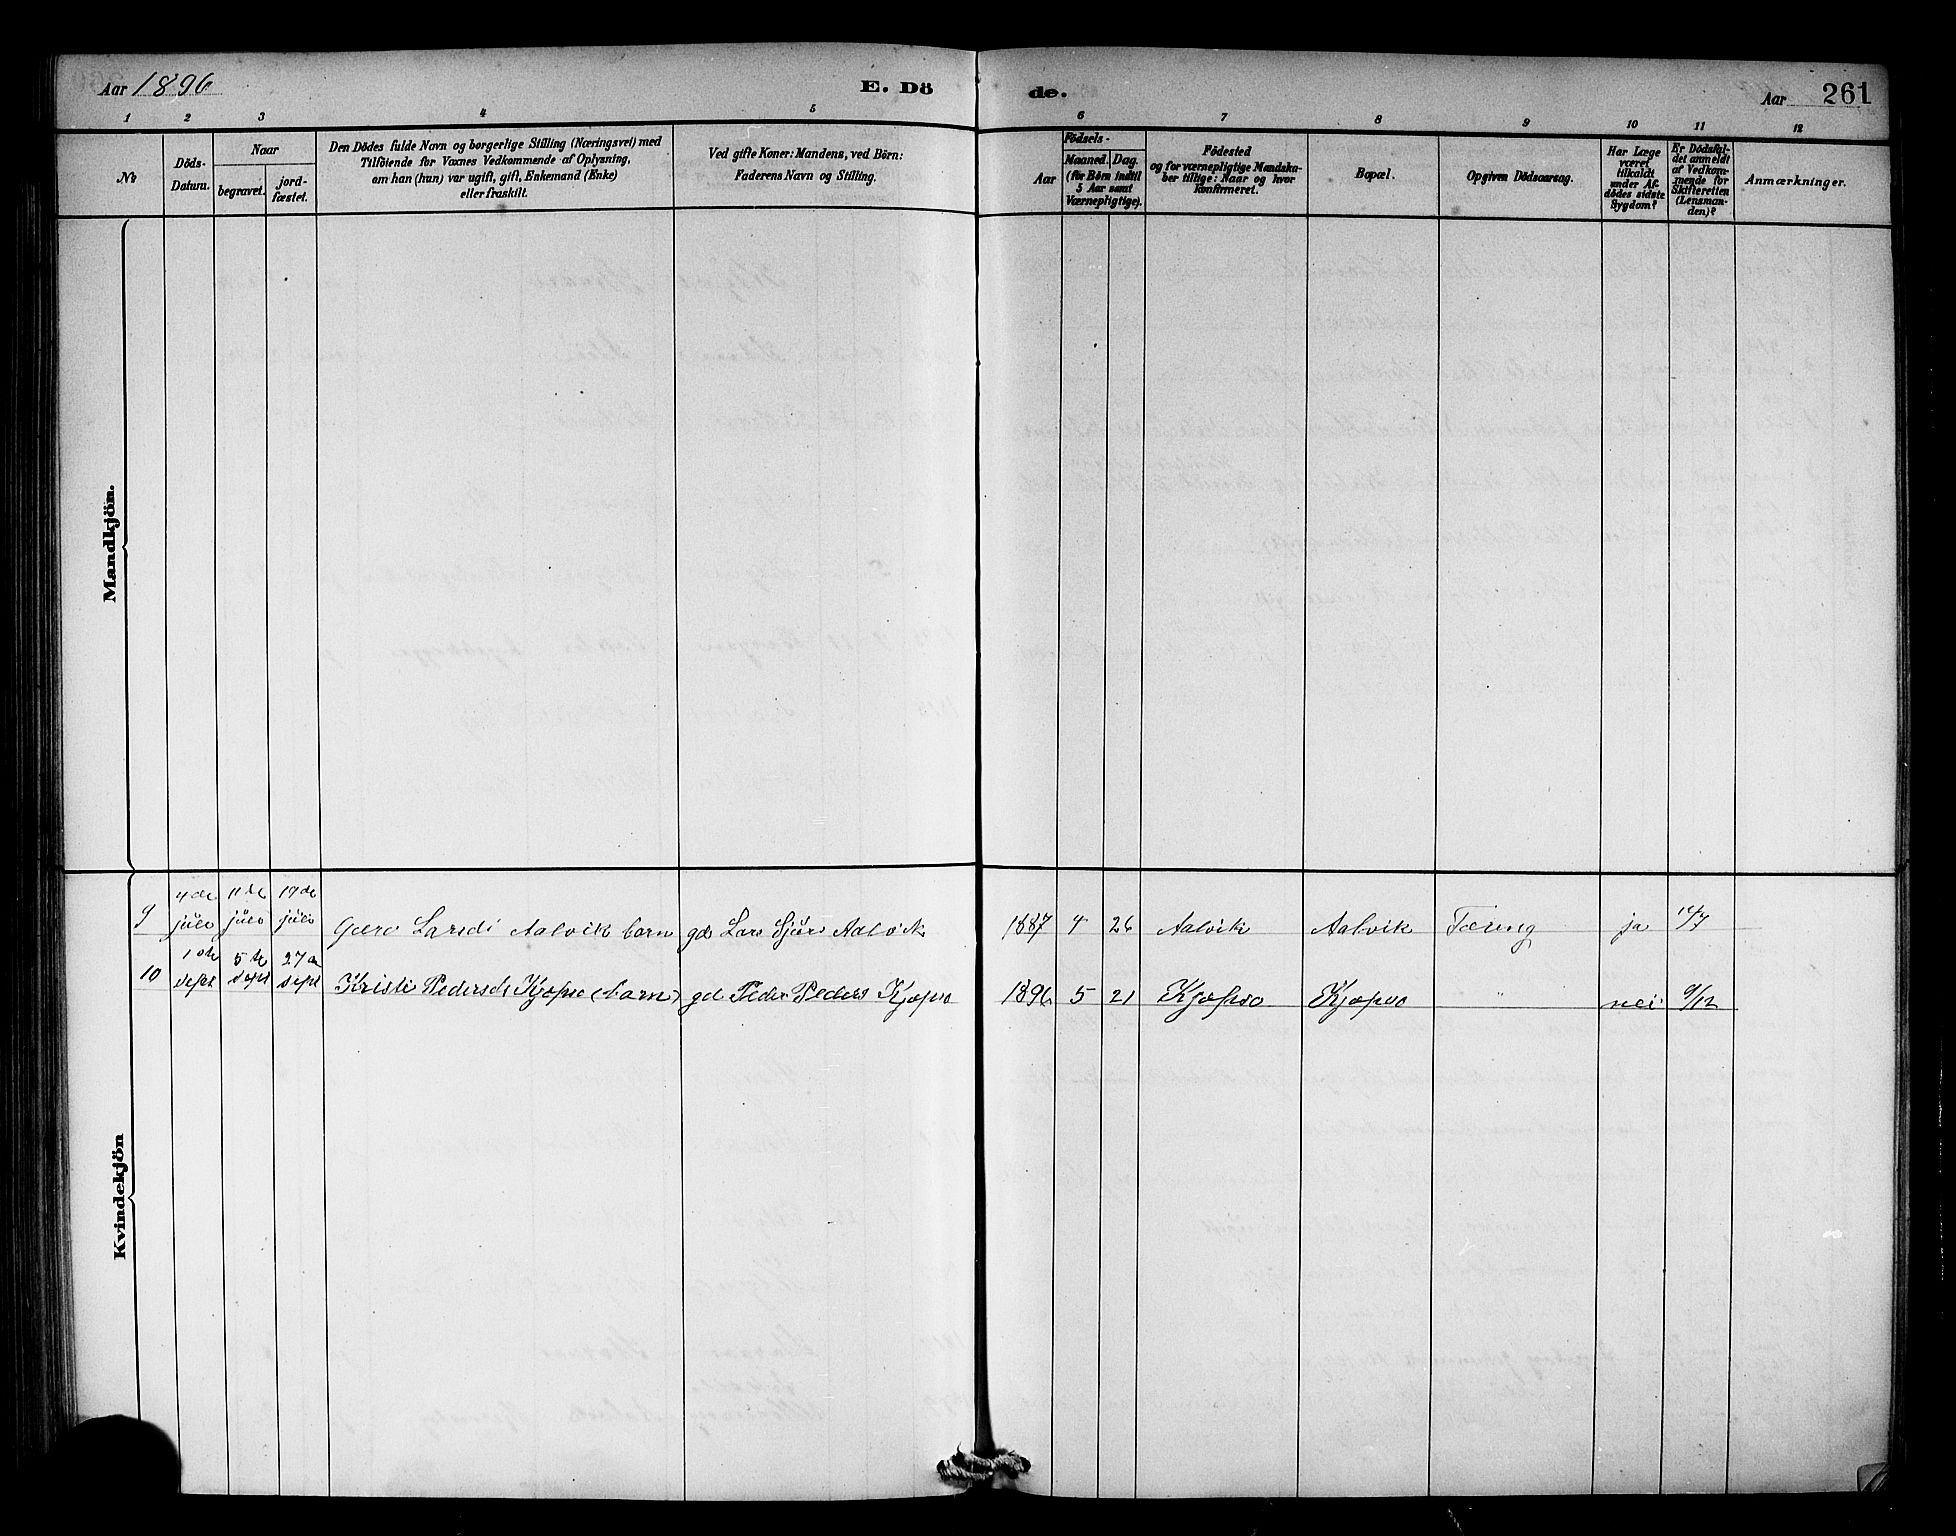 Aar 1896
E. Dö
de.
Aar
261
1 2 3 4 5 6 7 8 9 10 11 12
No
Döds-
Datum.
Naar
begravet.
jord-
fæstet.
Den Dödes fulde Navn og borgerlige Stilling (Næringsvei) med
Tilföiende for Voxnes Vedkommende af Oplysning,
om han (hun) var ugift, gift, Enkemand (Enke)
eller fraskilt.
Ved gifte Koner: Mandens, ved Börn:
Faderens Navn og Stilling.
Födsels-
Aar
Maaned. Dag.
(for Börn indtil
5 Aar samt
Værnepligtige).
Födested
og for værnepligtige Mandska-
ber tillige: Naar og hvor
konfirmeret.
Bopæl.
Opgiven Dödsaarsag.
Har Læge
været
tilkaldt
under Af-
dödes sidste
Sygdom?
Er Dödsfal-
det anmeldt
af Vedkom-
mende for
Skifteretten
(Lensman-
den)?
Anmærkninger.
Mandkjön.
Kvindekjön
4de 11te 19de
9 julo julo julo Larsdi Aalvik barn gd Lars Aalvik 1887 4 26 Aalvik Aalvik Tæring ja
1ste 5te 27de
10 sept sept sept Kristi Pedersd Kjæpso (barn) gd Peder Peders Kjæpso 1896 5 21 Kjæpso Kjæpso " nei 9/12